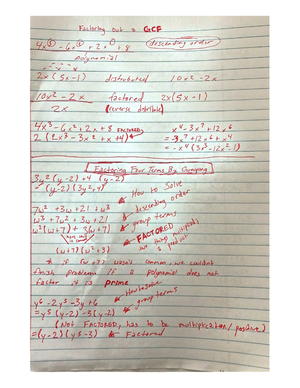 Factoring out a GCF
4x³ - 6x² + 2x + 8 descending order
polynomial
2x (5x - 1) distributed 10x² - 2x
10x² - 2x factored 2x(5x - 1)
2x (reverse distribute)
4x³ - 6x² + 2x + 8 FACTORED
2 (2x³ - 3x² + x + 4)
x⁴ - 3x⁷ + 12x⁶
= -3x⁷ + 12x⁶ + x⁴
= -x⁴ (3x³ - 12x² - 1)
Factoring Four Terms By Grouping
3y² (y - 2) + 4 (y - 2)
(y - 2) (3y² + 4)
How to Solve
7w² + 3w + 21 + w³ descending order
w³ + 7w² + 3w + 21 group terms
w²(w + 7) + 3(w + 7) FACTORED
(w + 7) (w² + 3)
* if (w + 7) wasn't common, we couldn't
finish problem. If a polynomial does not
factor it is prime
y⁶ - 2y⁵ - 3y + 6 How to solve
= y⁵ (y - 2) - 3(y - 2) group terms
(NOT FACTORED, has to be multiplication /
= (y - 2) (y⁵ - 3) Factored